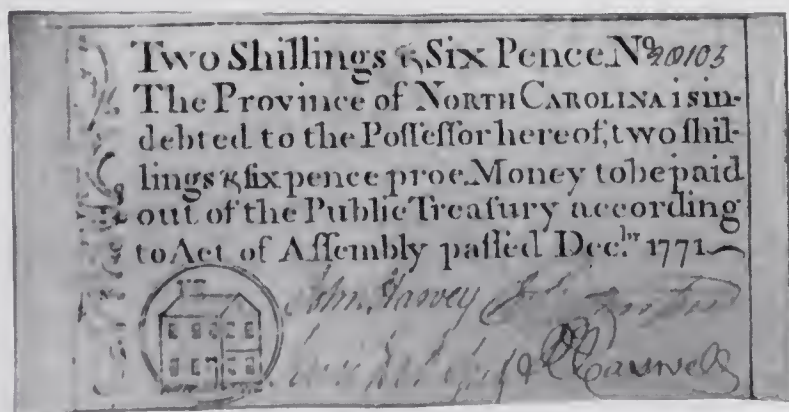 Two Shillings & Six Pence. No 20103
The Province of NORTH CAROLINA is in-
debted to the Poſſeſſor hereof, two ſhil-
lings & ſix pence proc. Money to be paid
out of the Public Treaſury according
to Act of Aſſembly paſſed Dec.br 1771
John Harvey
R Caswell